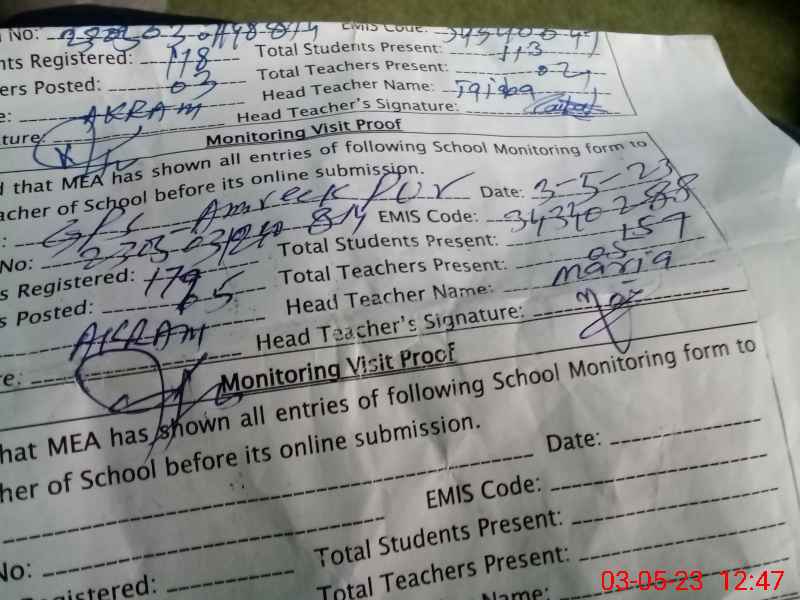 No: EMIS Code:
nts Registered: 118 Total Students Present: 113
ers Posted: 03 Total Teachers Present: 02
e: AKRAM Head Teacher Name: Taiba
ture: Head Teacher's Signature:
Monitoring Visit Proof
d that MEA has shown all entries of following School Monitoring form to
acher of School before its online submission.
: GPS Amreek Pur Date: 3-5-23
No: EMIS Code: 34340288
s Registered: 179 Total Students Present: 159
s Posted: 05 Total Teachers Present: 05
AKRAM Head Teacher Name: Maria
re: Head Teacher's Signature:
Monitoring Visit Proof
hat MEA has shown all entries of following School Monitoring form to
her of School before its online submission.
Date:
EMIS Code:
No: Total Students Present:
gistered: Total Teachers Present:
Name:
03-05-23 12:47